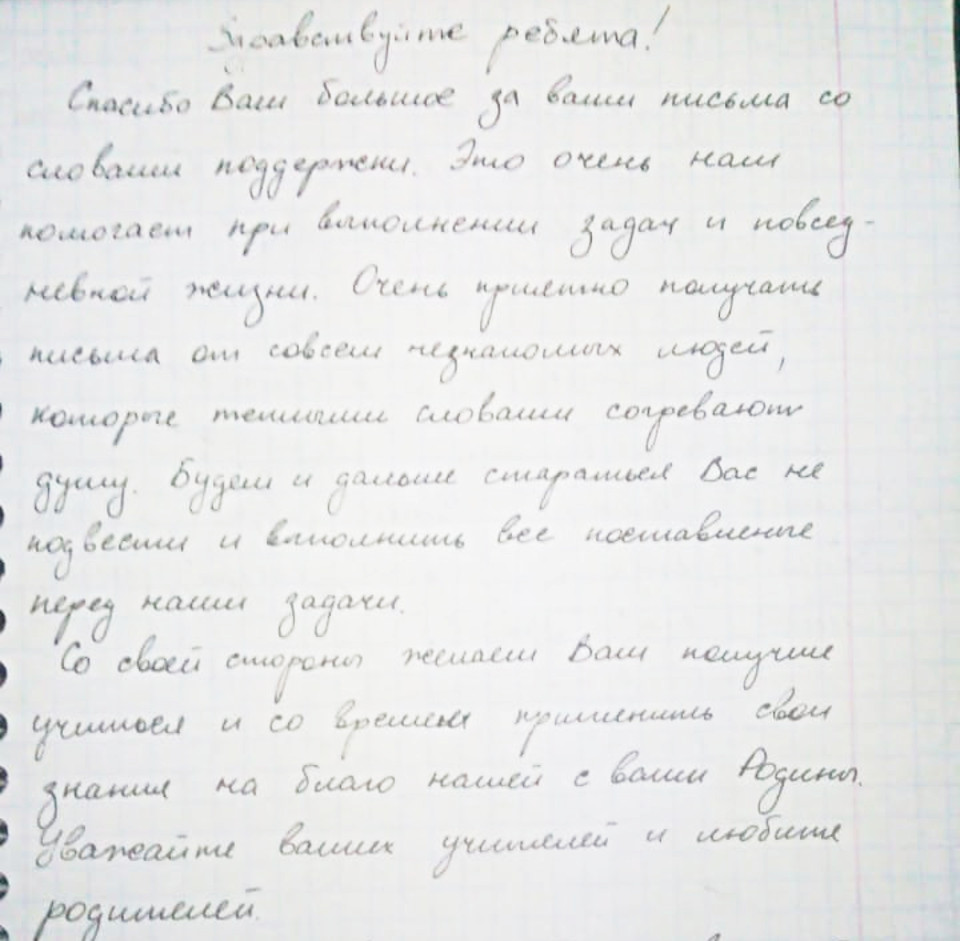 Здравствуйте ребята!
Спасибо Вам большое за ваши письма со
словами поддержки. Это очень нам
помогает при выполнении задач и повсед-
невной жизни. Очень приятно получать
письма от совсем незнакомых людей,
которые теплыми словами согревают
душу. Будем и дальше стараться Вас не
подвести и выполнить все поставленые
перед нами задачи.
Со своей стороны желаем Вам получше
учиться и со временем применить свои
знания на благо нашей с вами Родины.
Уважайте ваших учителей и любите
родителей.